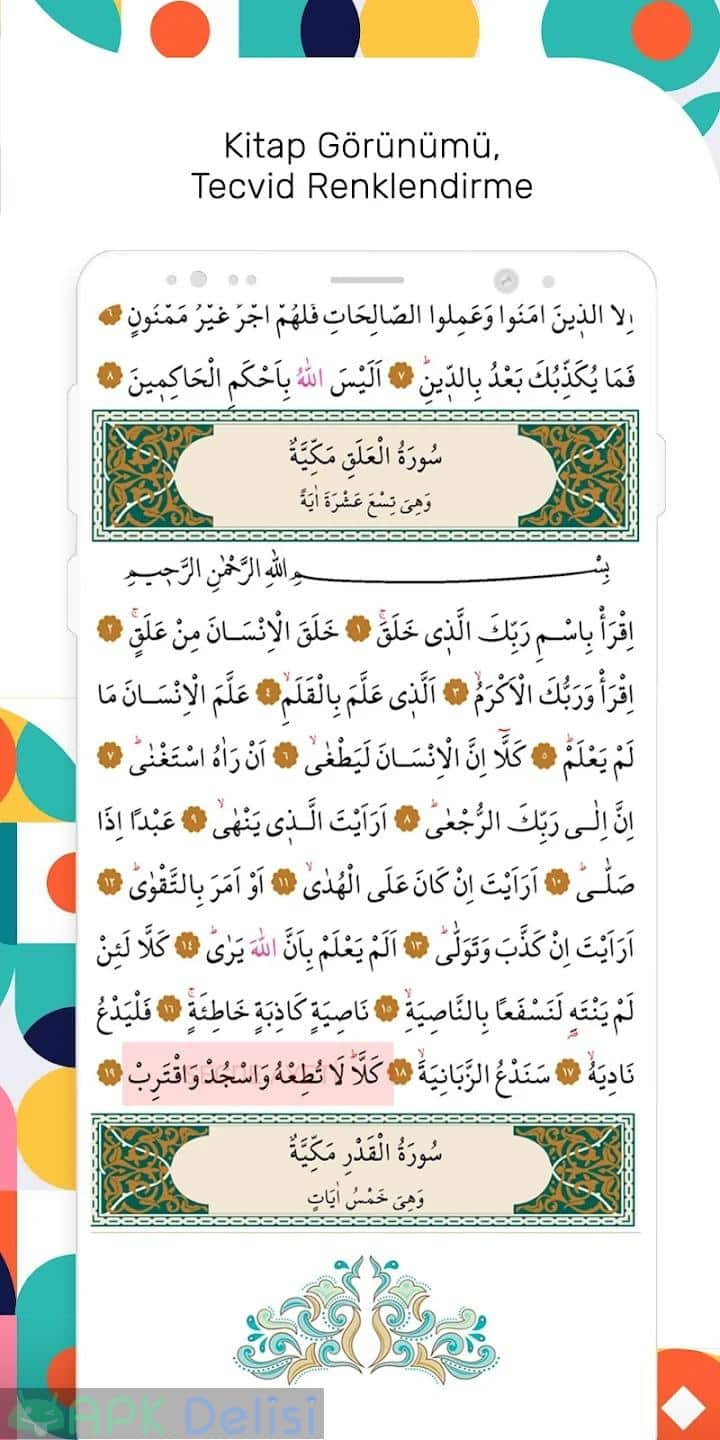 Kitap Görünümü,
Tecvid Renklendirme
اِلَّا الَّذ۪ينَ اٰمَنُوا وَعَمِلُوا الصَّالِحَاتِ فَلَهُمْ اَجْرٌ غَيْرُ مَمْنُونٍ ٦
فَمَا يُكَذِّبُكَ بَعْدُ بِالدّ۪ينِۜ ٧ اَلَيْسَ اللّٰهُ بِاَحْكَمِ الْحَاكِم۪ينَ ٨
سُورَةُ الْعَلَقِ مَكِّيَّةٌ
وَهِىَ تِسْعَ عَشْرَةَ اٰيَةً
بِسْمِ اللّٰهِ الرَّحْمٰنِ الرَّح۪يمِ
اِقْرَأْ بِاسْمِ رَبِّكَ الَّذ۪ى خَلَقَۚ ١ خَلَقَ الْاِنْسَانَ مِنْ عَلَقٍۚ ٢
اِقْرَأْ وَرَبُّكَ الْاَكْرَمُۙ ٣ اَلَّذ۪ى عَلَّمَ بِالْقَلَمِۙ ٤ عَلَّمَ الْاِنْسَانَ مَا
لَمْ يَعْلَمْۜ ٥ كَلَّٓا اِنَّ الْاِنْسَانَ لَيَطْغٰىۙ ٦ اَنْ رَاٰهُ اسْتَغْنٰىۜ ٧
اِنَّ اِلٰى رَبِّكَ الرُّجْعٰىۜ ٨ اَرَاَيْتَ الَّذ۪ى يَنْهٰىۙ ٩ عَبْدًا اِذَا
صَلّٰىۜ ١٠ اَرَاَيْتَ اِنْ كَانَ عَلَى الْهُدٰىۙ ١١ اَوْ اَمَرَ بِالتَّقْوٰىۜ ١٢
اَرَاَيْتَ اِنْ كَذَّبَ وَتَوَلّٰىۜ ١٣ اَلَمْ يَعْلَمْ بِاَنَّ اللّٰهَ يَرٰىۜ ١٤ كَلَّا لَئِنْ
لَمْ يَنْتَهِ لَنَسْفَعًا بِالنَّاصِيَةِۙ ١٥ نَاصِيَةٍ كَاذِبَةٍ خَاطِئَةٍۚ ١٦ فَلْيَدْعُ
نَادِيَهُۙ ١٧ سَنَدْعُ الزَّبَانِيَةَۙ ١٨ كَلَّاۜ لَا تُطِعْهُ وَاسْجُدْ وَاقْتَرِبْ ١٩
سُورَةُ الْقَدْرِ مَكِّيَّةٌ
وَهِىَ خَمْسُ اٰيَاتٍ
APK Delisi